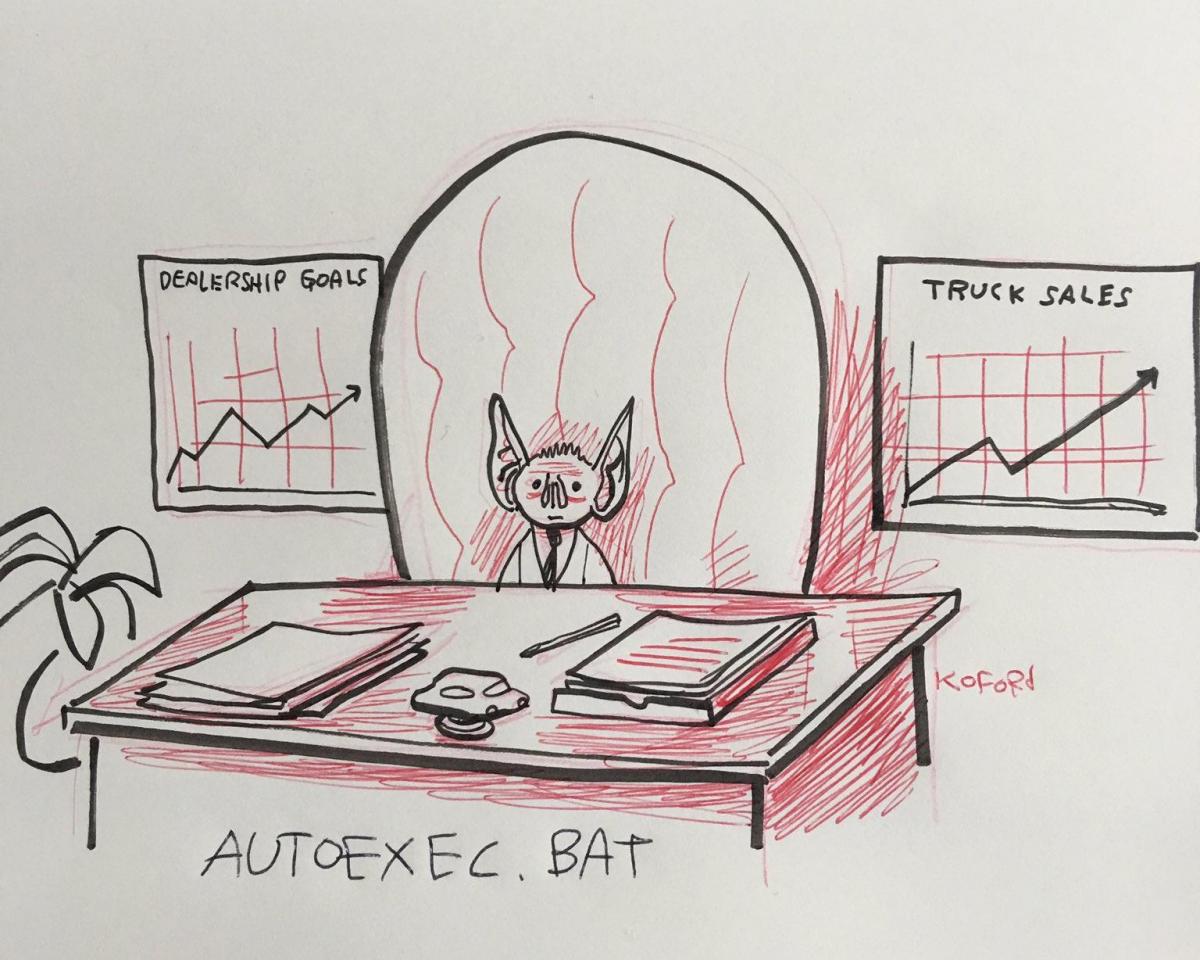 DEALERSHIP GOALS
TRUCK SALES
KOFORD
AUTOEXEC.BAT